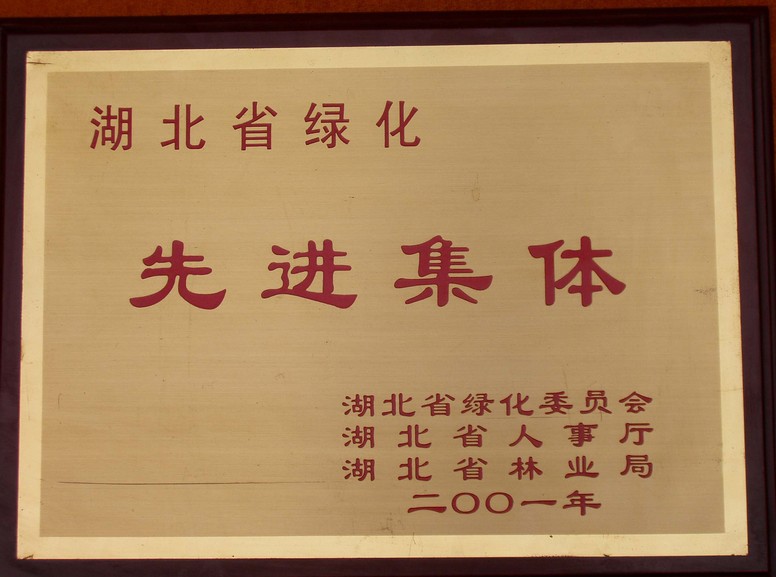 湖北省绿化
先进集体
湖北省绿化委员会
湖北省人事厅
湖北省林业局
二〇〇一年